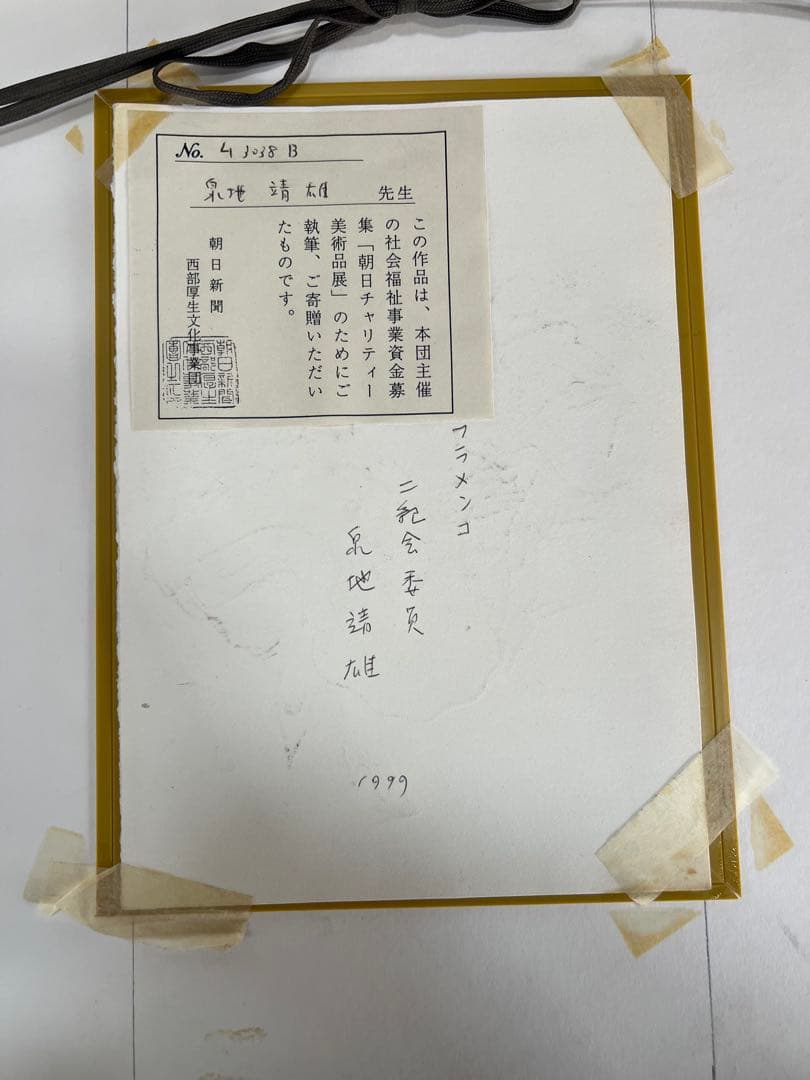 No. 43038B
泉地 靖雄 先生
この作品は、本団主催
の社会福祉事業資金募
集「朝日チャリティー
美術品展」のためにご
執筆、ご寄贈いただい
たものです。
朝日新聞
西部厚生文化事業団
フラメンコ
二紀会委員
泉地靖雄
1999